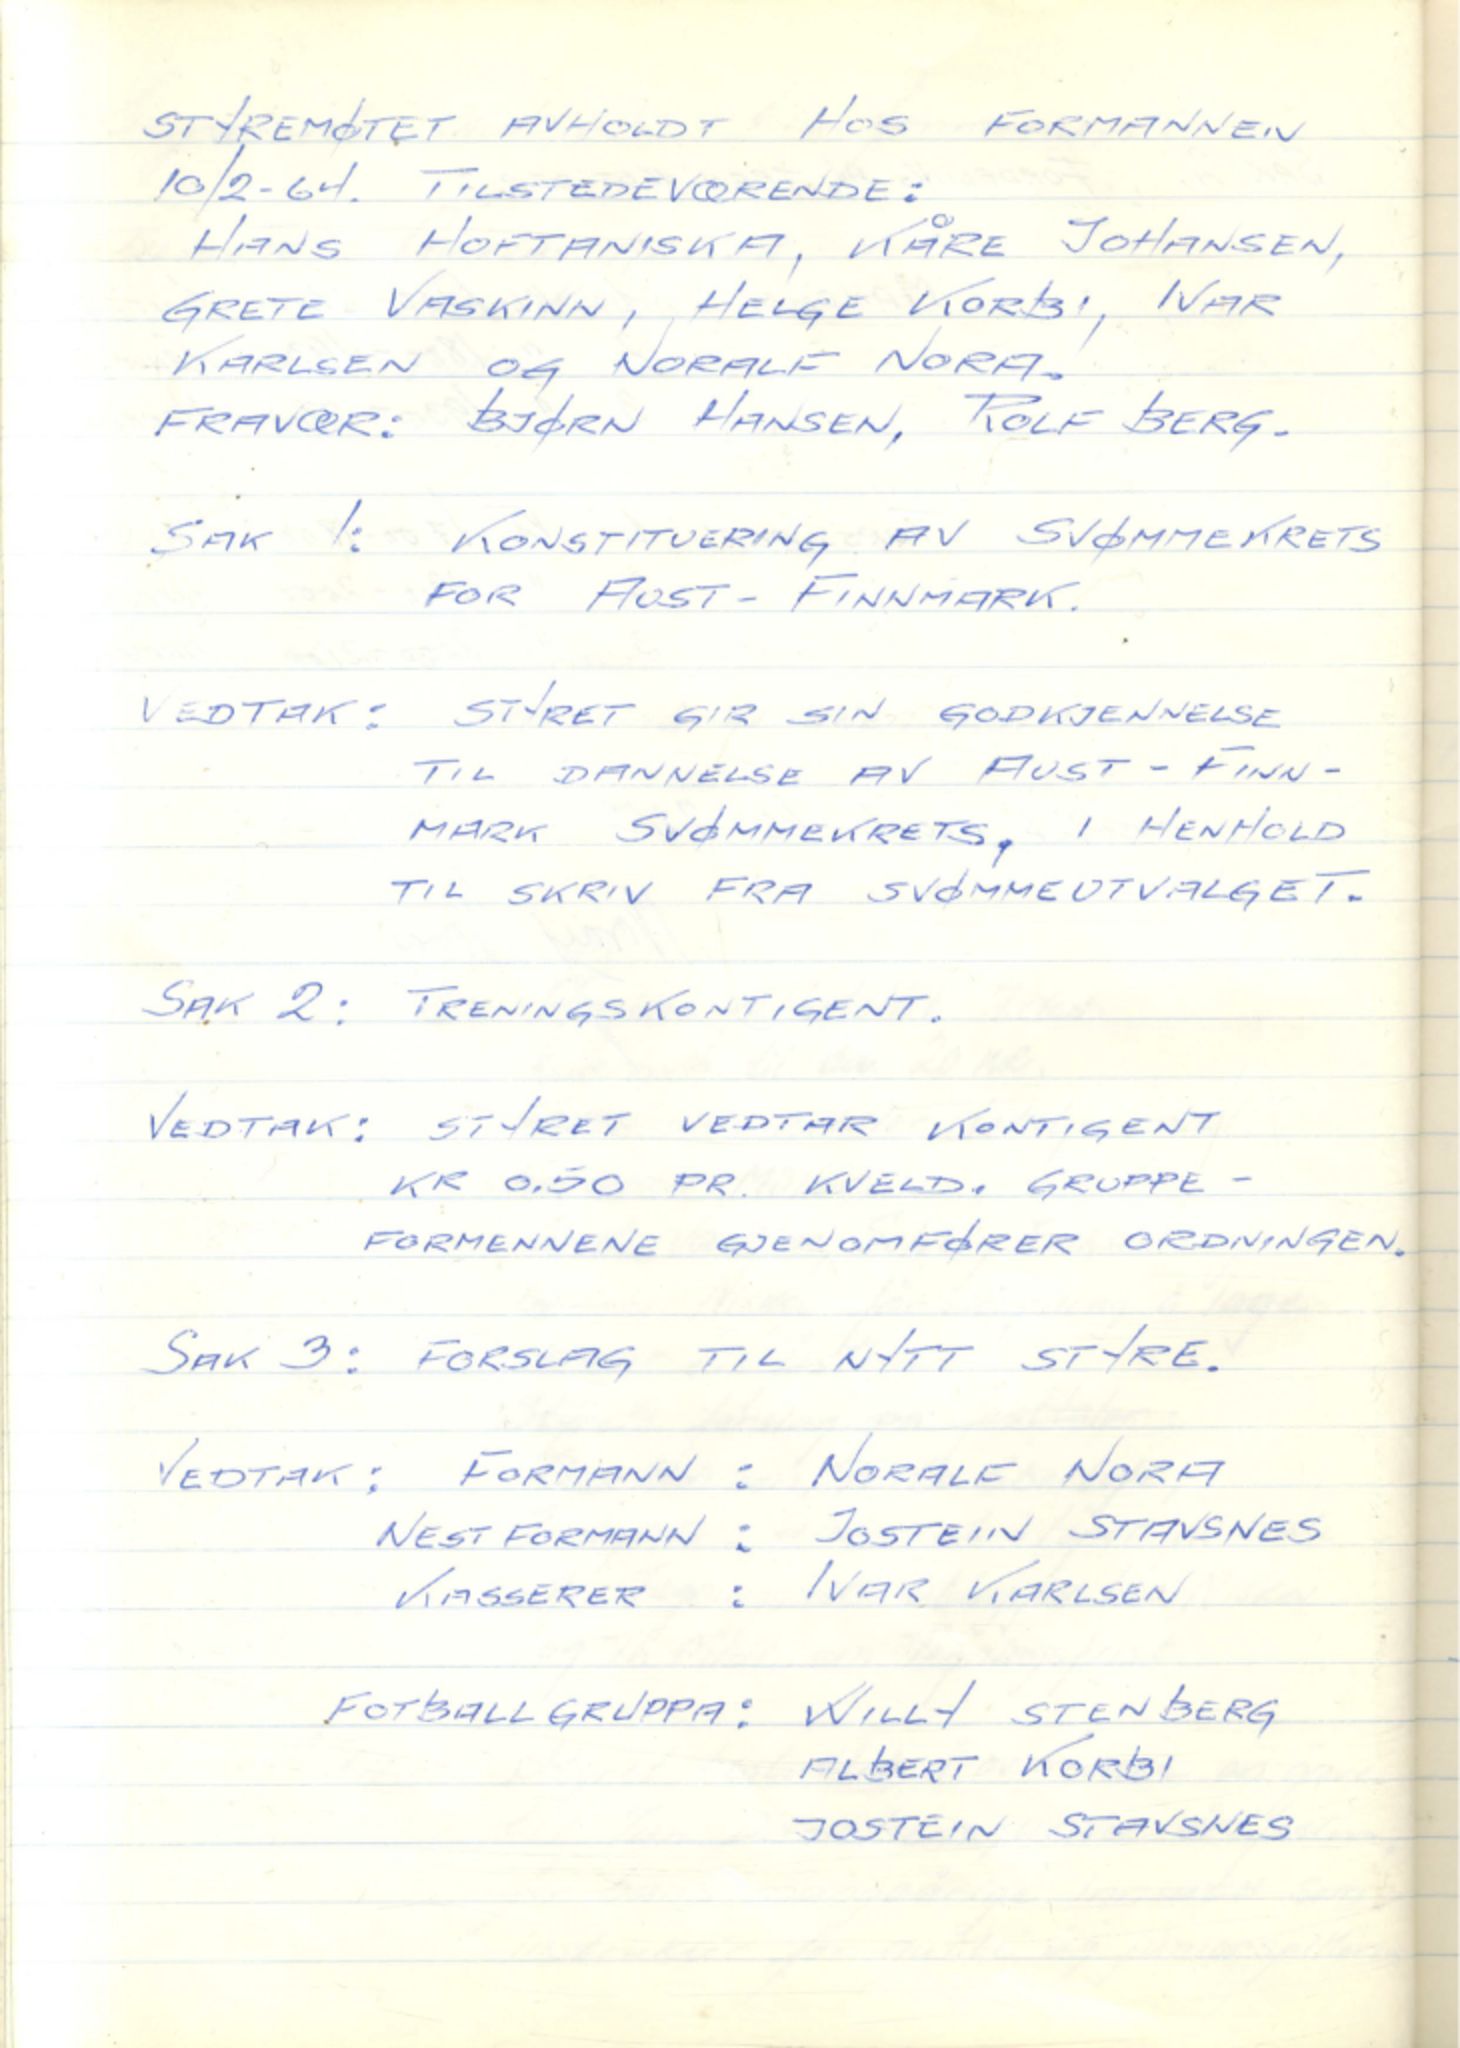 STYREMØTET AVHOLDT HOS FORMANNEN
10/2-64. TILSTEDEVÆRENDE:
HANS HOFTANISKA, KÅRE JOHANSEN,
GRETE VASKINN, HELGE KORBI, IVAR
KARLSEN OG NORALF NORA.
FRAVÆR: BJØRN HANSEN, ROLF BERG.
SAK 1: KONSTITUERING AV SVØMMEKRETS
FOR AUST-FINNMARK.
VEDTAK: STYRET GIR SIN GODKJENNELSE
TIL DANNELSE AV AUST-FINN-
MARK SVØMMEKRETS, I HENHOLD
TIL SKRIV FRA SVØMMEUTVALGET.
SAK 2: TRENINGSKONTIGENT.
VEDTAK: STYRET VEDTAR KONTIGENT
KR 0.50 PR. KVELD. GRUPPE-
FORMENNENE GJENOMFØRER ORDNINGEN.
SAK 3: FORSLAG TIL NYTT STYRE.
VEDTAK: FORMANN : NORALF NORA
NESTFORMANN : JOSTEIN STAVSNES
KASSERER : IVAR KARLSEN
FOTBALLGRUPPA: WILLY STENBERG
ALBERT KORBI
JOSTEIN STAVSNES